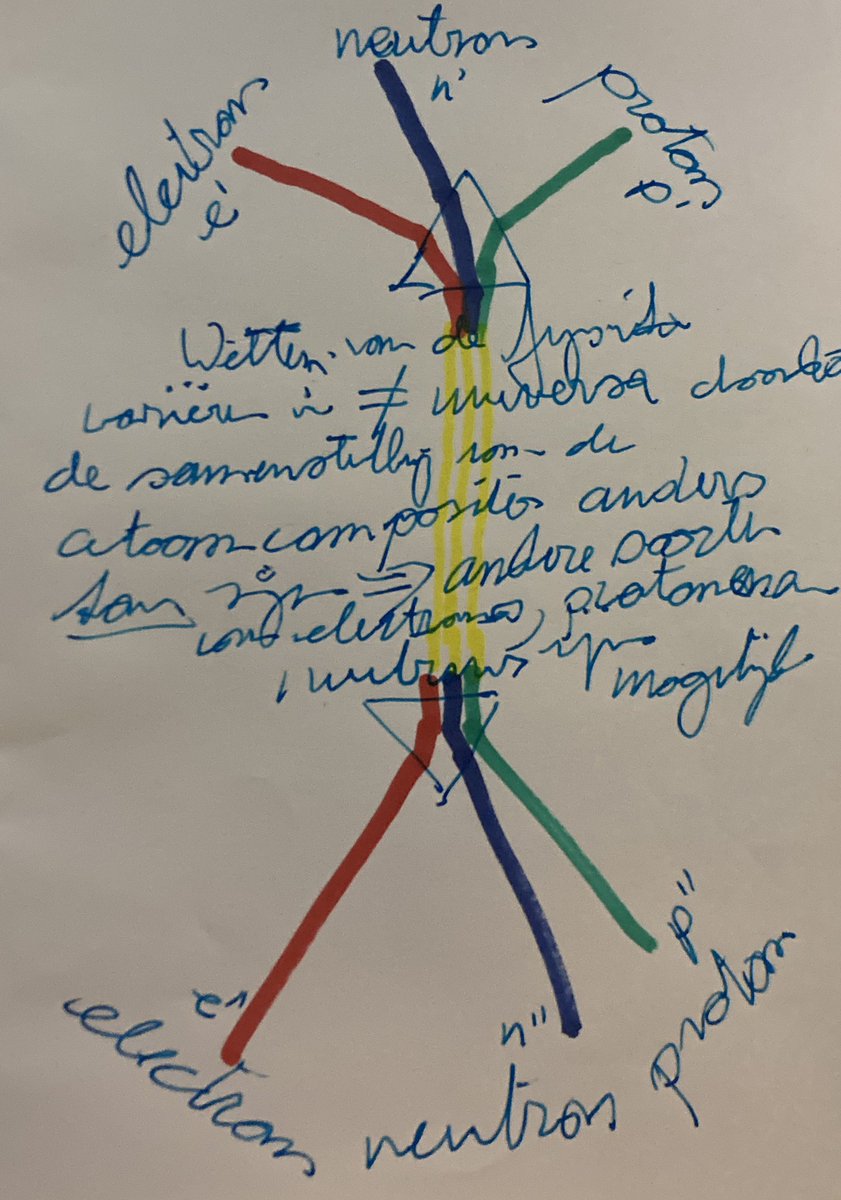 neutron
n'
electron
e'
proton
p'
Wetten van de fysica
variëren in ≠ universa doordat
de samenstelling van de
atoomcomposities anders
kan zijn ⇒ andere soorten
van electronen, protonen
neutrons zijn mogelijk
p"
e"
n"
electron neutron proton